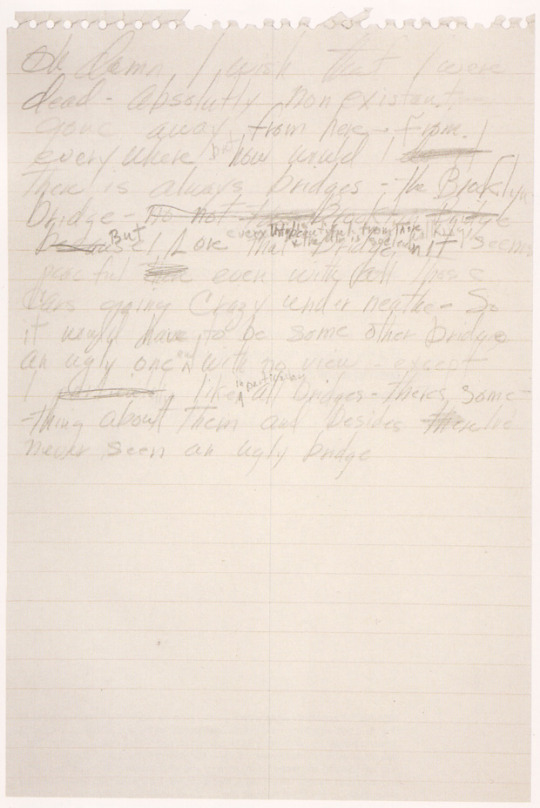 Oh damn I wish that I were
dead - absolutly nonexistant
gone away from here - from
everywhere but how would I
There is always bridges - the Brooklyn
bridge - no not the Brooklyn Bridge
Because But I Love that bridge everything is beautiful from there & the air is so clean walking it seems
peaceful there even with all those
cars going crazy underneathe - So
it would have to be some other bridge
an ugly one and with no view - except
I like in particular all bridges - theres some-
-thing about them and besides I've
never seen an ugly bridge